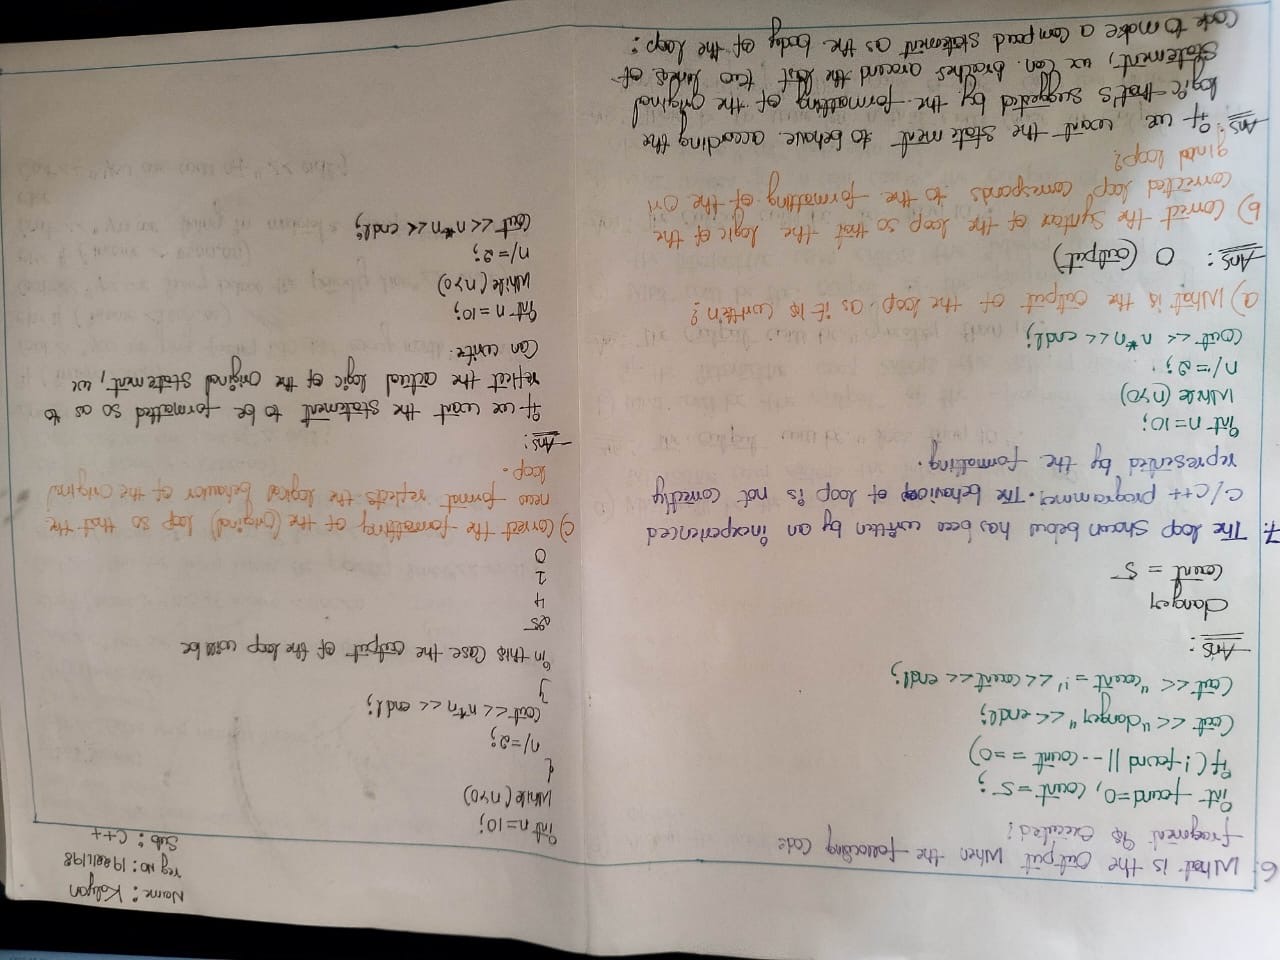 Name: Kalyan
reg No: 19BEI1198
Sub: C++
6. What is the output when the following code
fragment is executed?
int found=0, count=5;
if(!found || --count ==0)
Cout << "danger" << endl;
Cout << "count=" << count << endl;
Ans:
danger
count = 5
7. The loop shown below has been written by an inexperienced
C/C++ programmer. The behaviour of loop is not correctly
represented by the formatting.
int n=10;
While (n>0)
n/=2;
Cout << n*n << endl;
a) What is the output of the loop as it is written?
Ans: 0 (output)
b) Correct the syntax of the loop so that the logic of the
corrected loop corresponds to the formatting of the ori
ginal loop?
Ans: If we want the statement to behave according the
logic that's suggested by the formatting of the original
statement, we can braches around the last two lines of
Code to make a compound statement as the body of the loop:
int n=10;
While (n>0)
{
n/=2;
Cout << n*n << endl;
}
in this case the output of the loop will be
25
4
1
0
c) Correct the formatting of the (original) loop so that the
new format reflects the logical behavior of the original
loop.
Ans:
If we want the statement to be formatted so as to
reflect the actual logic of the original statement, we
Can write.
int n=10;
While (n>0)
n/=2;
Cout << n*n << endl;